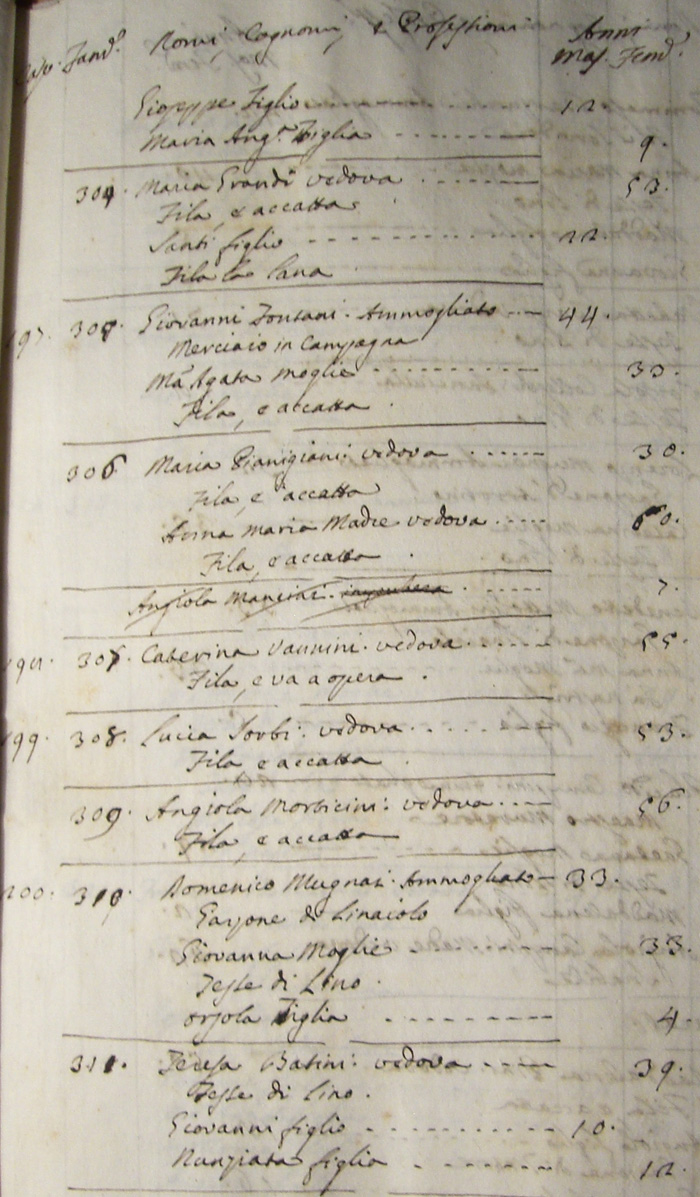 Case. Famᵉ. Nomi, Cognomi, e Professioni Anni
Mas. Fem.
Gioseppe Figlio 12.
Maria Angᵃ. Figlia 9.
304. Maria Grandi vedova 53.
Fila, e accatta.
Santi figlio 22.
Fila la lana
197. 305. Giovanni Fontani. Ammogliato 44.
Merciaio in Campagna
Mᵃ Agata moglie 30.
Fila, e accatta.
306 Maria Pianigiani: vedova 30.
Fila, e accatta
Anna maria Madre vedova 60.
Fila, e accatta.
Angiola Mancini. 7.
307. Caterina Vannini. vedova. 55.
Fila, e va a opera.
199. 308. Lucia Sorbi: vedova. 53.
Fila e accatta.
309. Angiola Morbicini: vedova. 56.
Fila, e accatta
200. 310. Domenico Mugnai. Ammogliato 33.
Garzone di Linaiolo
Giovanna Moglie 33.
Tesse di Lino.
Orsola Figlia 4.
311. Teresa Batini: vedova 39.
Tesse di Lino.
Giovanni figlio 10.
Nunziata figlia 12.